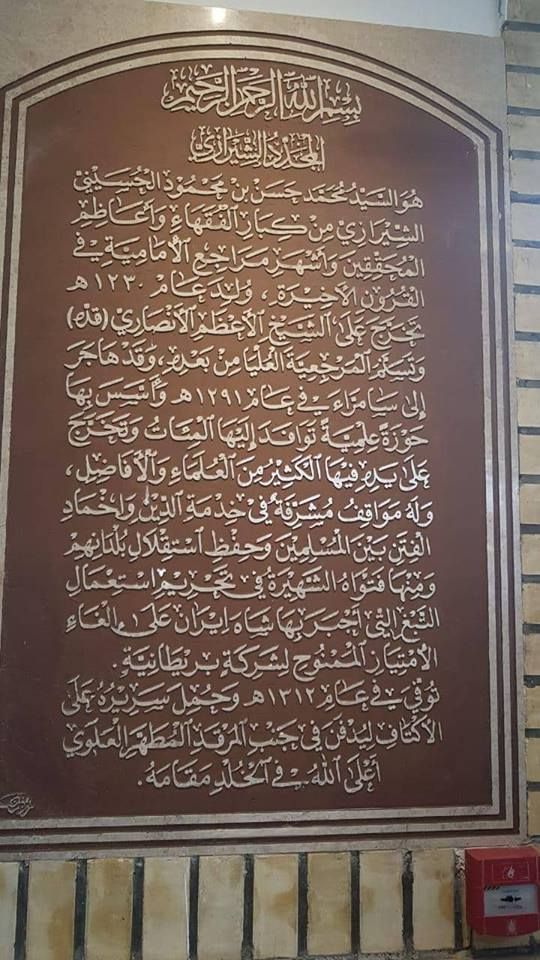 بِسْمِ اللهِ الرَّحْمٰنِ الرَّحِيمِ
المُجَدِّدُ الشِّيرَازِي
هُوَ السَّيِّدُ مُحَمَّد حَسَن بْن مَحْمُود الحُسَيْنِيّ
الشِّيرَازِي مِنْ كِبَارِ الفُقَهَاءِ وَأَعَاظِمِ
المُحَقِّقِينَ وَأَشْهَرِ مَرَاجِعِ الأمَامِيَّةِ فِي
القُرُونِ الأَخِيرَةِ، وُلِدَ عَام ١٢٣٠ هـ
تَخَرَّجَ عَلَى الشَّيْخِ الأَعْظَمِ الأَنْصَارِي (قده)
وَتَسَلَّمَ المَرْجِعِيَّةَ العُلْيَا مِنْ بَعْدِهِ، وَقَدْ هَاجَرَ
إِلَى سَامَرَّاءَ فِي عَام ١٢٩١ هـ وَأَسَّسَ بِهَا
حَوْزَةً عِلْمِيَّةً تَوَافَدَ إِلَيْهَا المِئَاتُ وَتَخَرَّجَ
عَلَى يَدِهِ فِيهَا الكَثِيرُ مِنَ العُلَمَاءِ وَالأَفَاضِلِ،
وَلَهُ مَوَاقِفُ مُشَرِّفَةٌ فِي خِدْمَةِ الدِّينِ وَإِخْمَادِ
الفِتَنِ بَيْنَ المُسْلِمِينَ وَحِفْظِ اسْتِقْلَالِ بُلْدَانِهِمْ
وَمِنْهَا فَتْوَاهُ الشَّهِيرَةُ فِي تَحْرِيمِ اسْتِعْمَالِ
التَّبَغِ الَّتِي أَجْبَرَ بِهَا شَاهَ إِيرَانَ عَلَى إِلْغَاءِ
الأمْتِيَازِ المَمْنُوحِ لِشَرِكَةٍ بِرِيطَانِيَّةٍ.
تُوُفِّيَ فِي عَام ١٣١٢ هـ وَحُمِلَ سَرِيرُهُ عَلَى
الأَكْتَافِ لِيُدْفَنَ فِي جَنْبِ المَرْقَدِ المُطَهَّرِ العَلَوِي
أَعْلَى اللهُ فِي الخُلْدِ مَقَامَهُ.